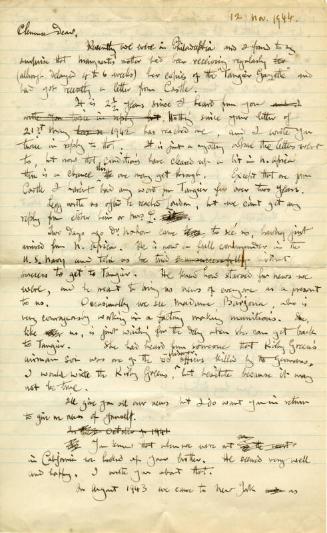 12 Nov. 1944.
Clemma Dear,
Recently we were in Philadelphia and I found to my
surprise that Margaret's mother had been receiving regularly
(always delayed 4 to 6 weeks) her copies of the Tangier Gazette and
had just recently a letter from Castle.
It is 2½ years since I heard from you
Nothing since your letter of
21st May 1942 has reached me, and I wrote you
twice in reply to that. It is just a mystery where the letters went
to, but now that conditions have cleared up a bit in N. Africa
there is a chance this one may get through. Except that one from
Castle I haven't had any word from Tangier for over two years.
Gregg wrote us often to reach London, but we can't get any
reply from
Two days ago Dr. came to see us, having just
arrived from N. Africa. He is now a full commander in the
U.S. Navy and told us he tried without
success to get to Tangier. He knew how starved for news we
were, and he meant to bring us news of everyone as a present
to us. Occasionally we see Madame , who is
very courageously working in a factory making munitions. She
like us, is just waiting for the day when she can get back
to Tangier. She had heard from someone that Kirby Green's
airman son was one of the 50 officers killed by the Germans.
I would write the Kirby Greens, but hesitate because it may
not be true.
I'll give you all our news but I do want you in return
to give me news of yourself.
You know that when we were
in California we looked up your brother. He seemed very well
and happy. I wrote you about that.
In August 1943 we came to New York as